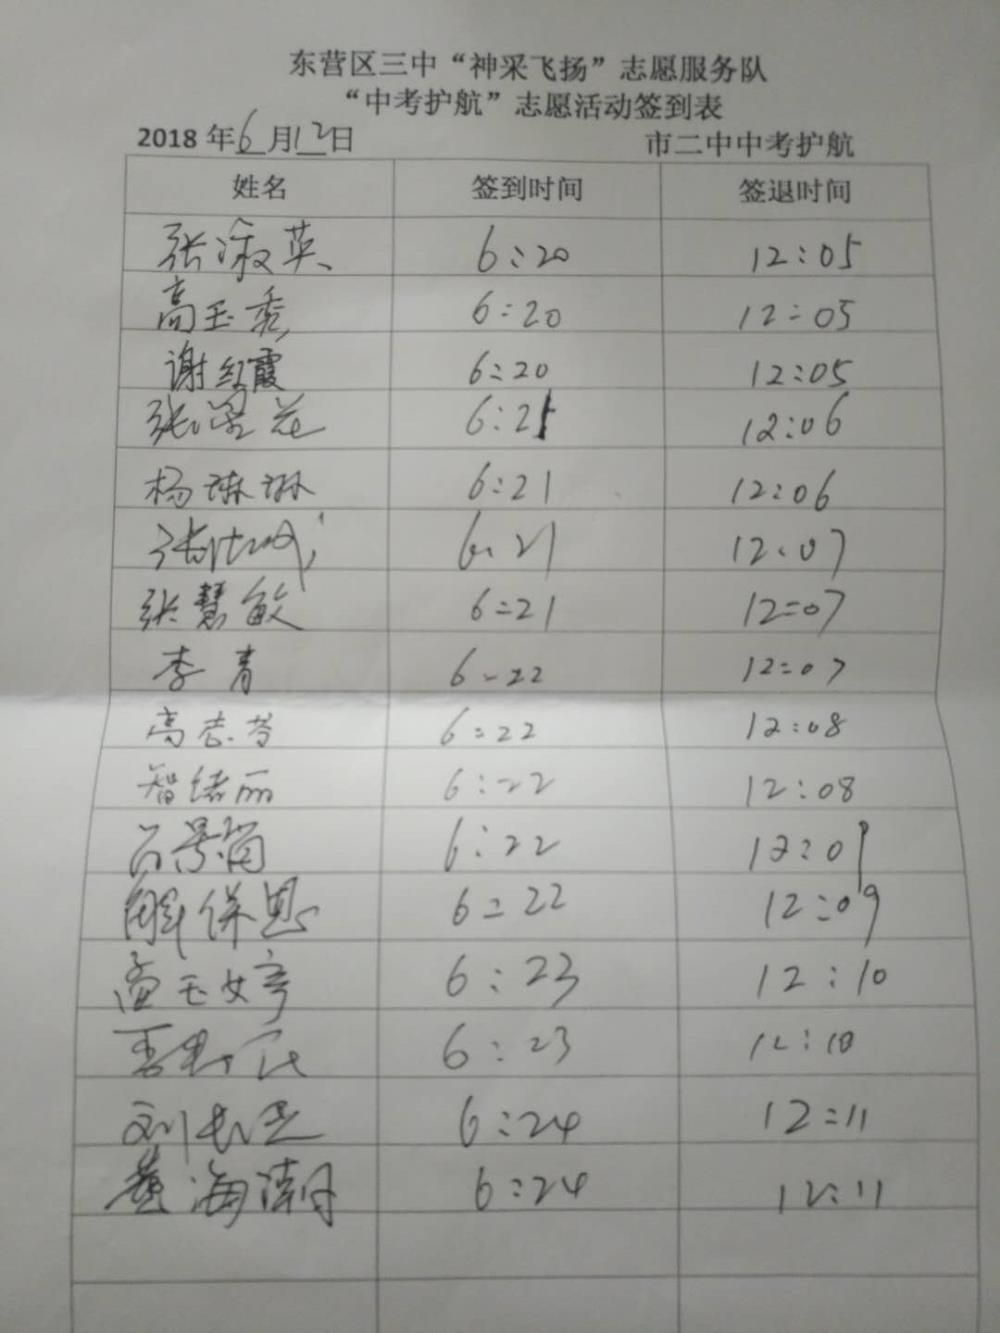 东营区三中“神采飞扬”志愿服务队
“中考护航”志愿活动签到表
2018 年6月12日 市二中中考护航
姓名 签到时间 签退时间
张淑英 6:20 12:05
高玉秀 6:20 12:05
谢红霞 6:20 12:05
张 6:21 12:06
杨琳琳 6:21 12:06
张 6:21 12:07
张慧敏 6:21 12:07
李青 6:22 12:07
高志芳 6:22 12:08
智绪丽 6:22 12:08
景 6:22 12:09
解 6:22 12:09
孟玉婷 6:23 12:10
6:23 12:10
刘 6:24 12:11
黄海潮 6:24 12:11